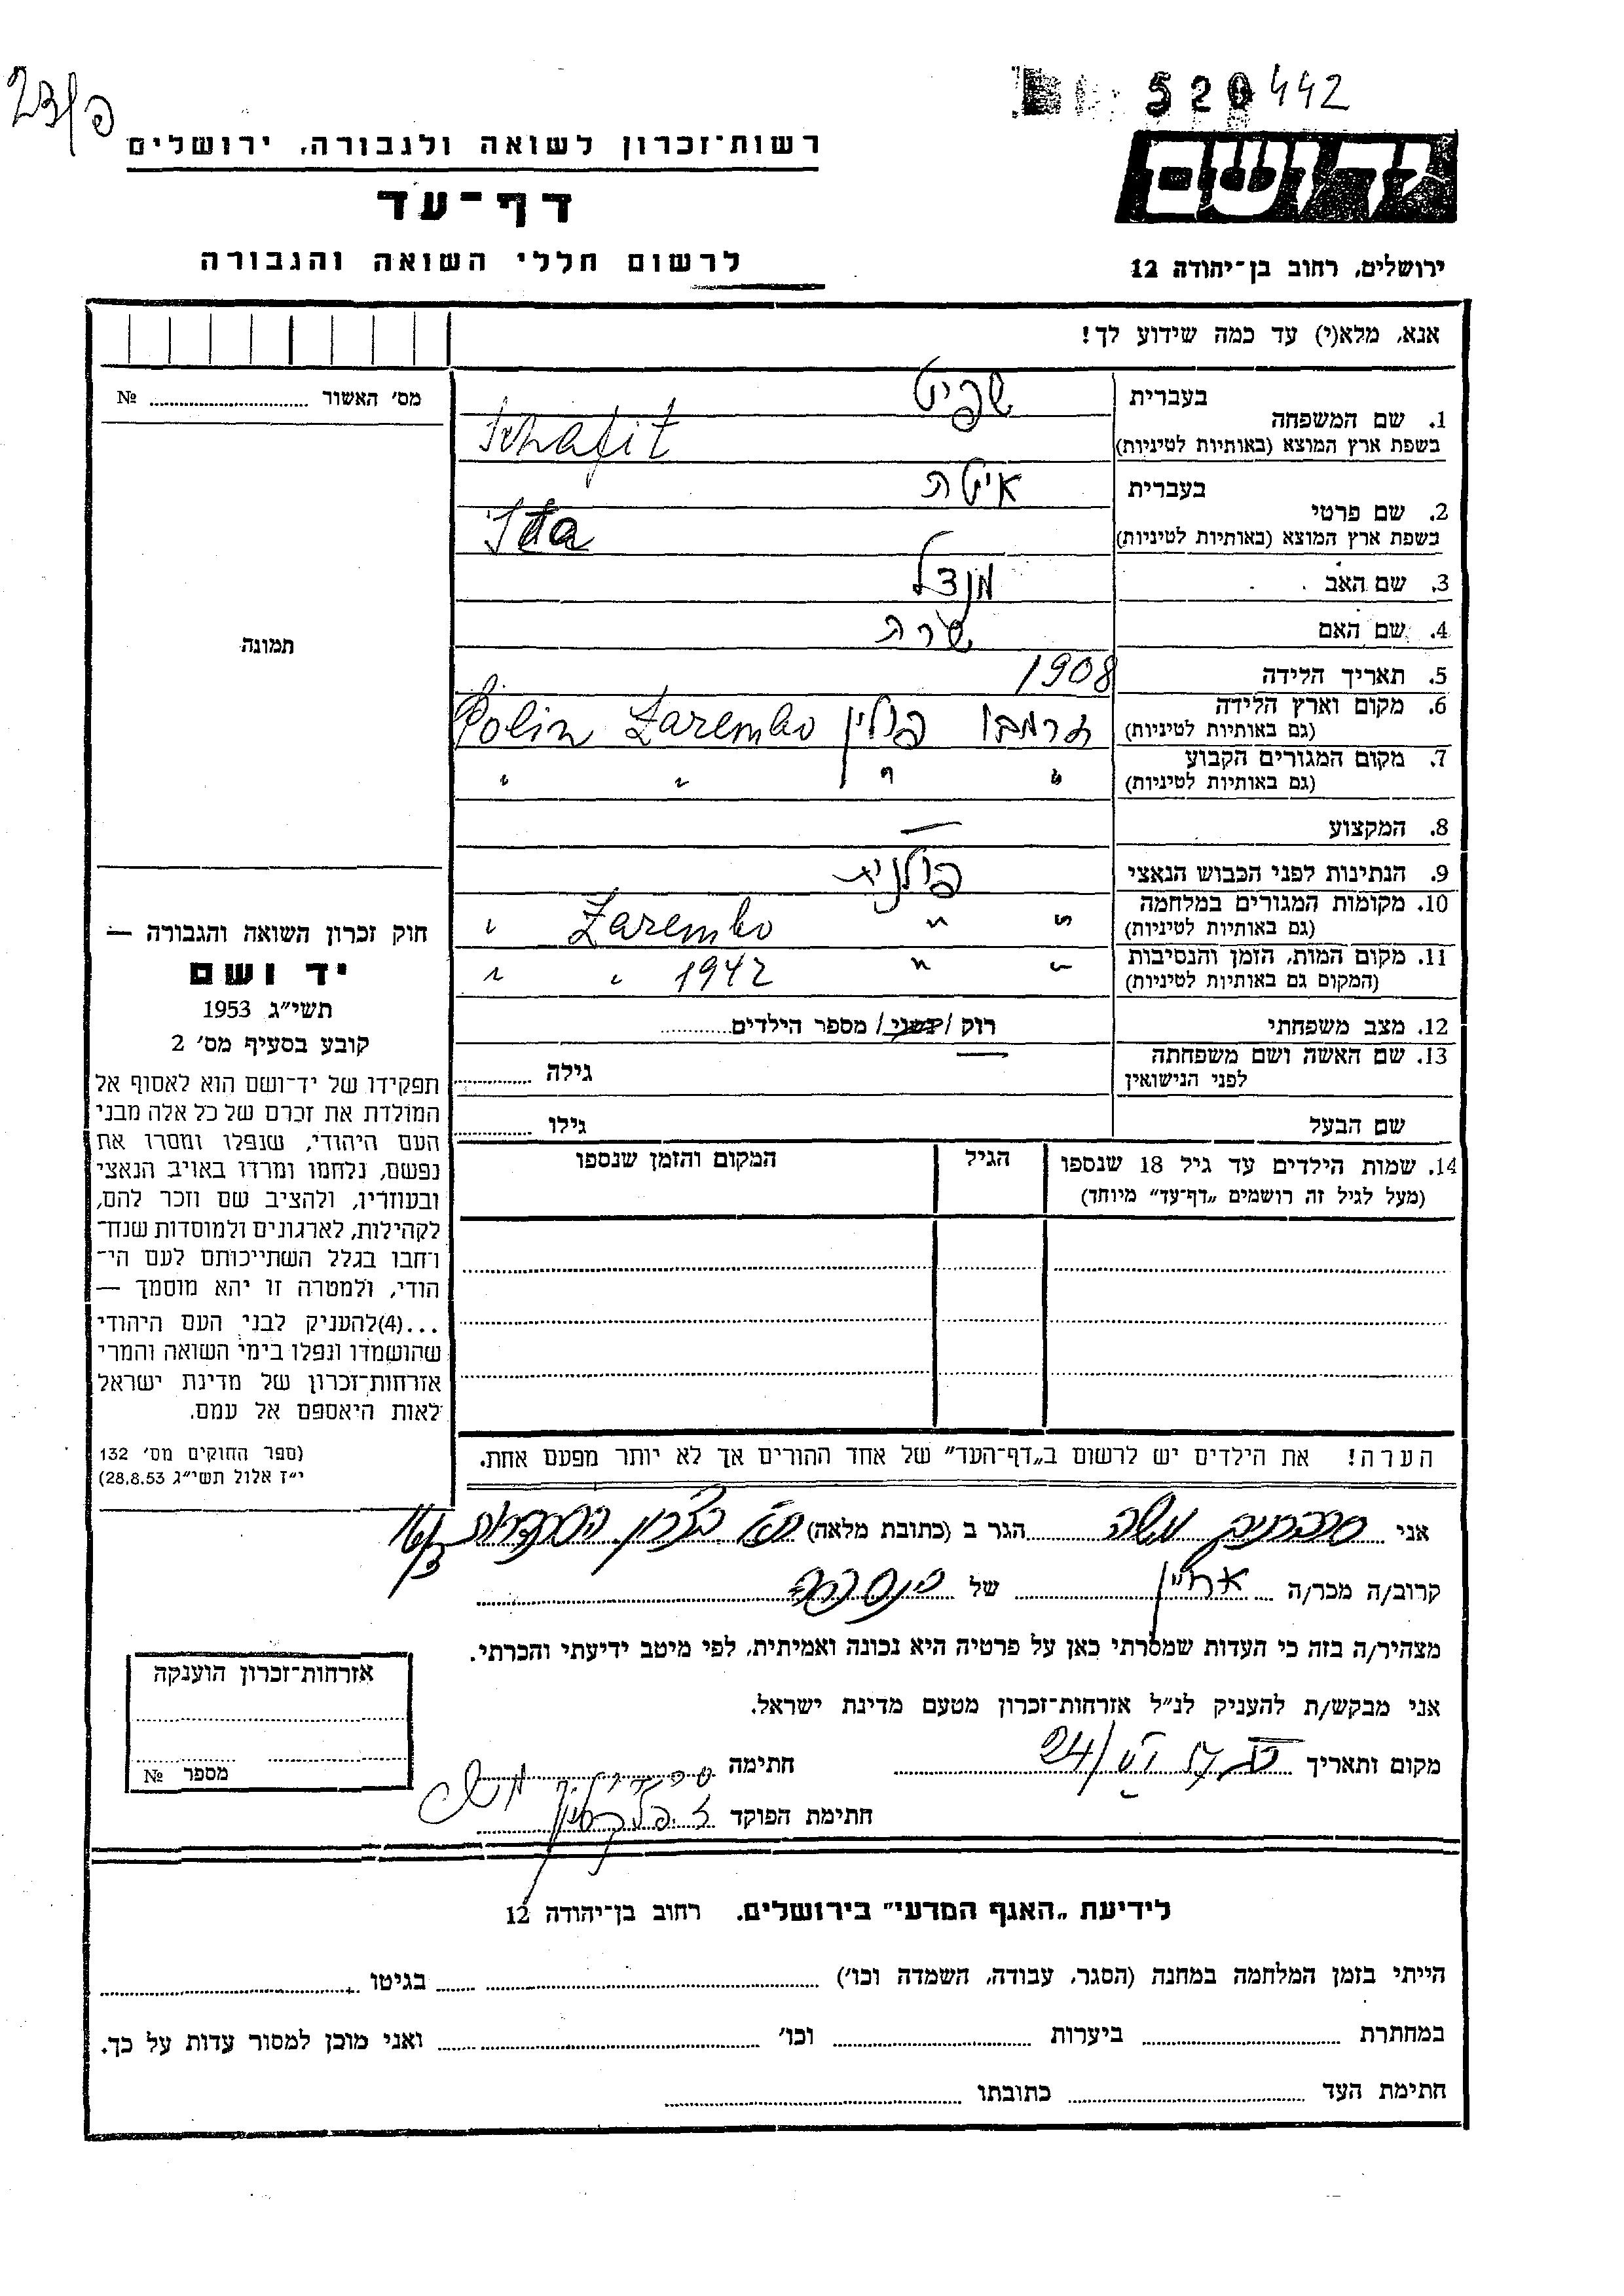 23/פ
520442
רשות־זכרון לשואה ולגבורה, ירושלים
יד ושם
דף־עד
לרשום חללי השואה והגבורה
ירושלים, רחוב בן־יהודה 12
אנא, מלא(י) עד כמה שידוע לך!
מס׳ האשור № ....................
תמונה
בעברית שפיט
1. שם המשפחה
בשפת ארץ המוצא (באותיות לטיניות) Schafit
בעברית איטה
2. שם פרטי
בשפת ארץ המוצא (באותיות לטיניות) Ita
3. שם האב מנדל
4. שם האם שרה
5. תאריך הלידה 1908
6. מקום וארץ הלידה זרמבו פולין Zarembo Polin
(גם באותיות לטיניות)
7. מקום המגורים הקבוע " " " "
(גם באותיות לטיניות)
8. המקצוע —
9. הנתינות לפני הכבוש הנאצי פולנית
10. מקומות המגורים במלחמה " " Zarembo "
(גם באותיות לטיניות)
11. מקום המות, הזמן והנסיבות " " 1942 " "
(המקום גם באותיות לטיניות)
12. מצב משפחתי רוק / נשוי / מספר הילדים............
13. שם האשה ושם משפחתה — גילה ............
לפני הנישואין
שם הבעל גילו ............
14. שמות הילדים עד גיל 18 שנספו הגיל המקום והזמן שנספו
(מעל לגיל זה רושמים „דף־עד״ מיוחד)
הערה! את הילדים יש לרשום ב„דף־העד״ של אחד ההורים אך לא יותר מפעם אחת.
חוק זכרון השואה והגבורה —
יד ושם
תשי״ג 1953
קובע בסעיף מס׳ 2
תפקידו של יד־ושם הוא לאסוף אל
המולדת את זכרם של כל אלה מבני
העם היהודי, שנפלו ומסרו את
נפשם, נלחמו ומרדו באויב הנאצי
ובעוזריו, ולהציב שם וזכר להם,
לקהילות, לארגונים ולמוסדות שנח־
רחבו בגלל השתייכותם לעם הי־
הודי, ולמטרה זו יהא מוסמך —
...(4)להעניק לבני העם היהודי
שהושמדו ונפלו בימי השואה והמרי
אזרחות־זכרון של מדינת ישראל
לאות היאספם אל עמם.
(ספר החוקים מס׳ 132
י״ז אלול תשי״ג 28.8.53)
אני משה הגר ב (כתובת מלאה)
קרוב/ה מכר/ה של
מצהיר/ה בזה כי העדות שמסרתי כאן על פרטיה היא נכונה ואמיתית, לפי מיטב ידיעתי והכרתי.
אני מבקש/ת להעניק לנ״ל אזרחות־זכרון מטעם מדינת ישראל.
מקום ותאריך 24/ חתימה
חתימת הפוקד
אזרחות־זכרון הוענקה
מספר №
לידיעת „האגף המדעי״ בירושלים. רחוב בן־יהודה 12
הייתי בזמן המלחמה במחנה (הסגר, עבודה, השמדה וכו׳) .................... בגיטו ....................
במחתרת .................... ביערות .................... וכו׳ .................... ואני מוכן למסור עדות על כך.
חתימת העד .................... כתובתו ....................